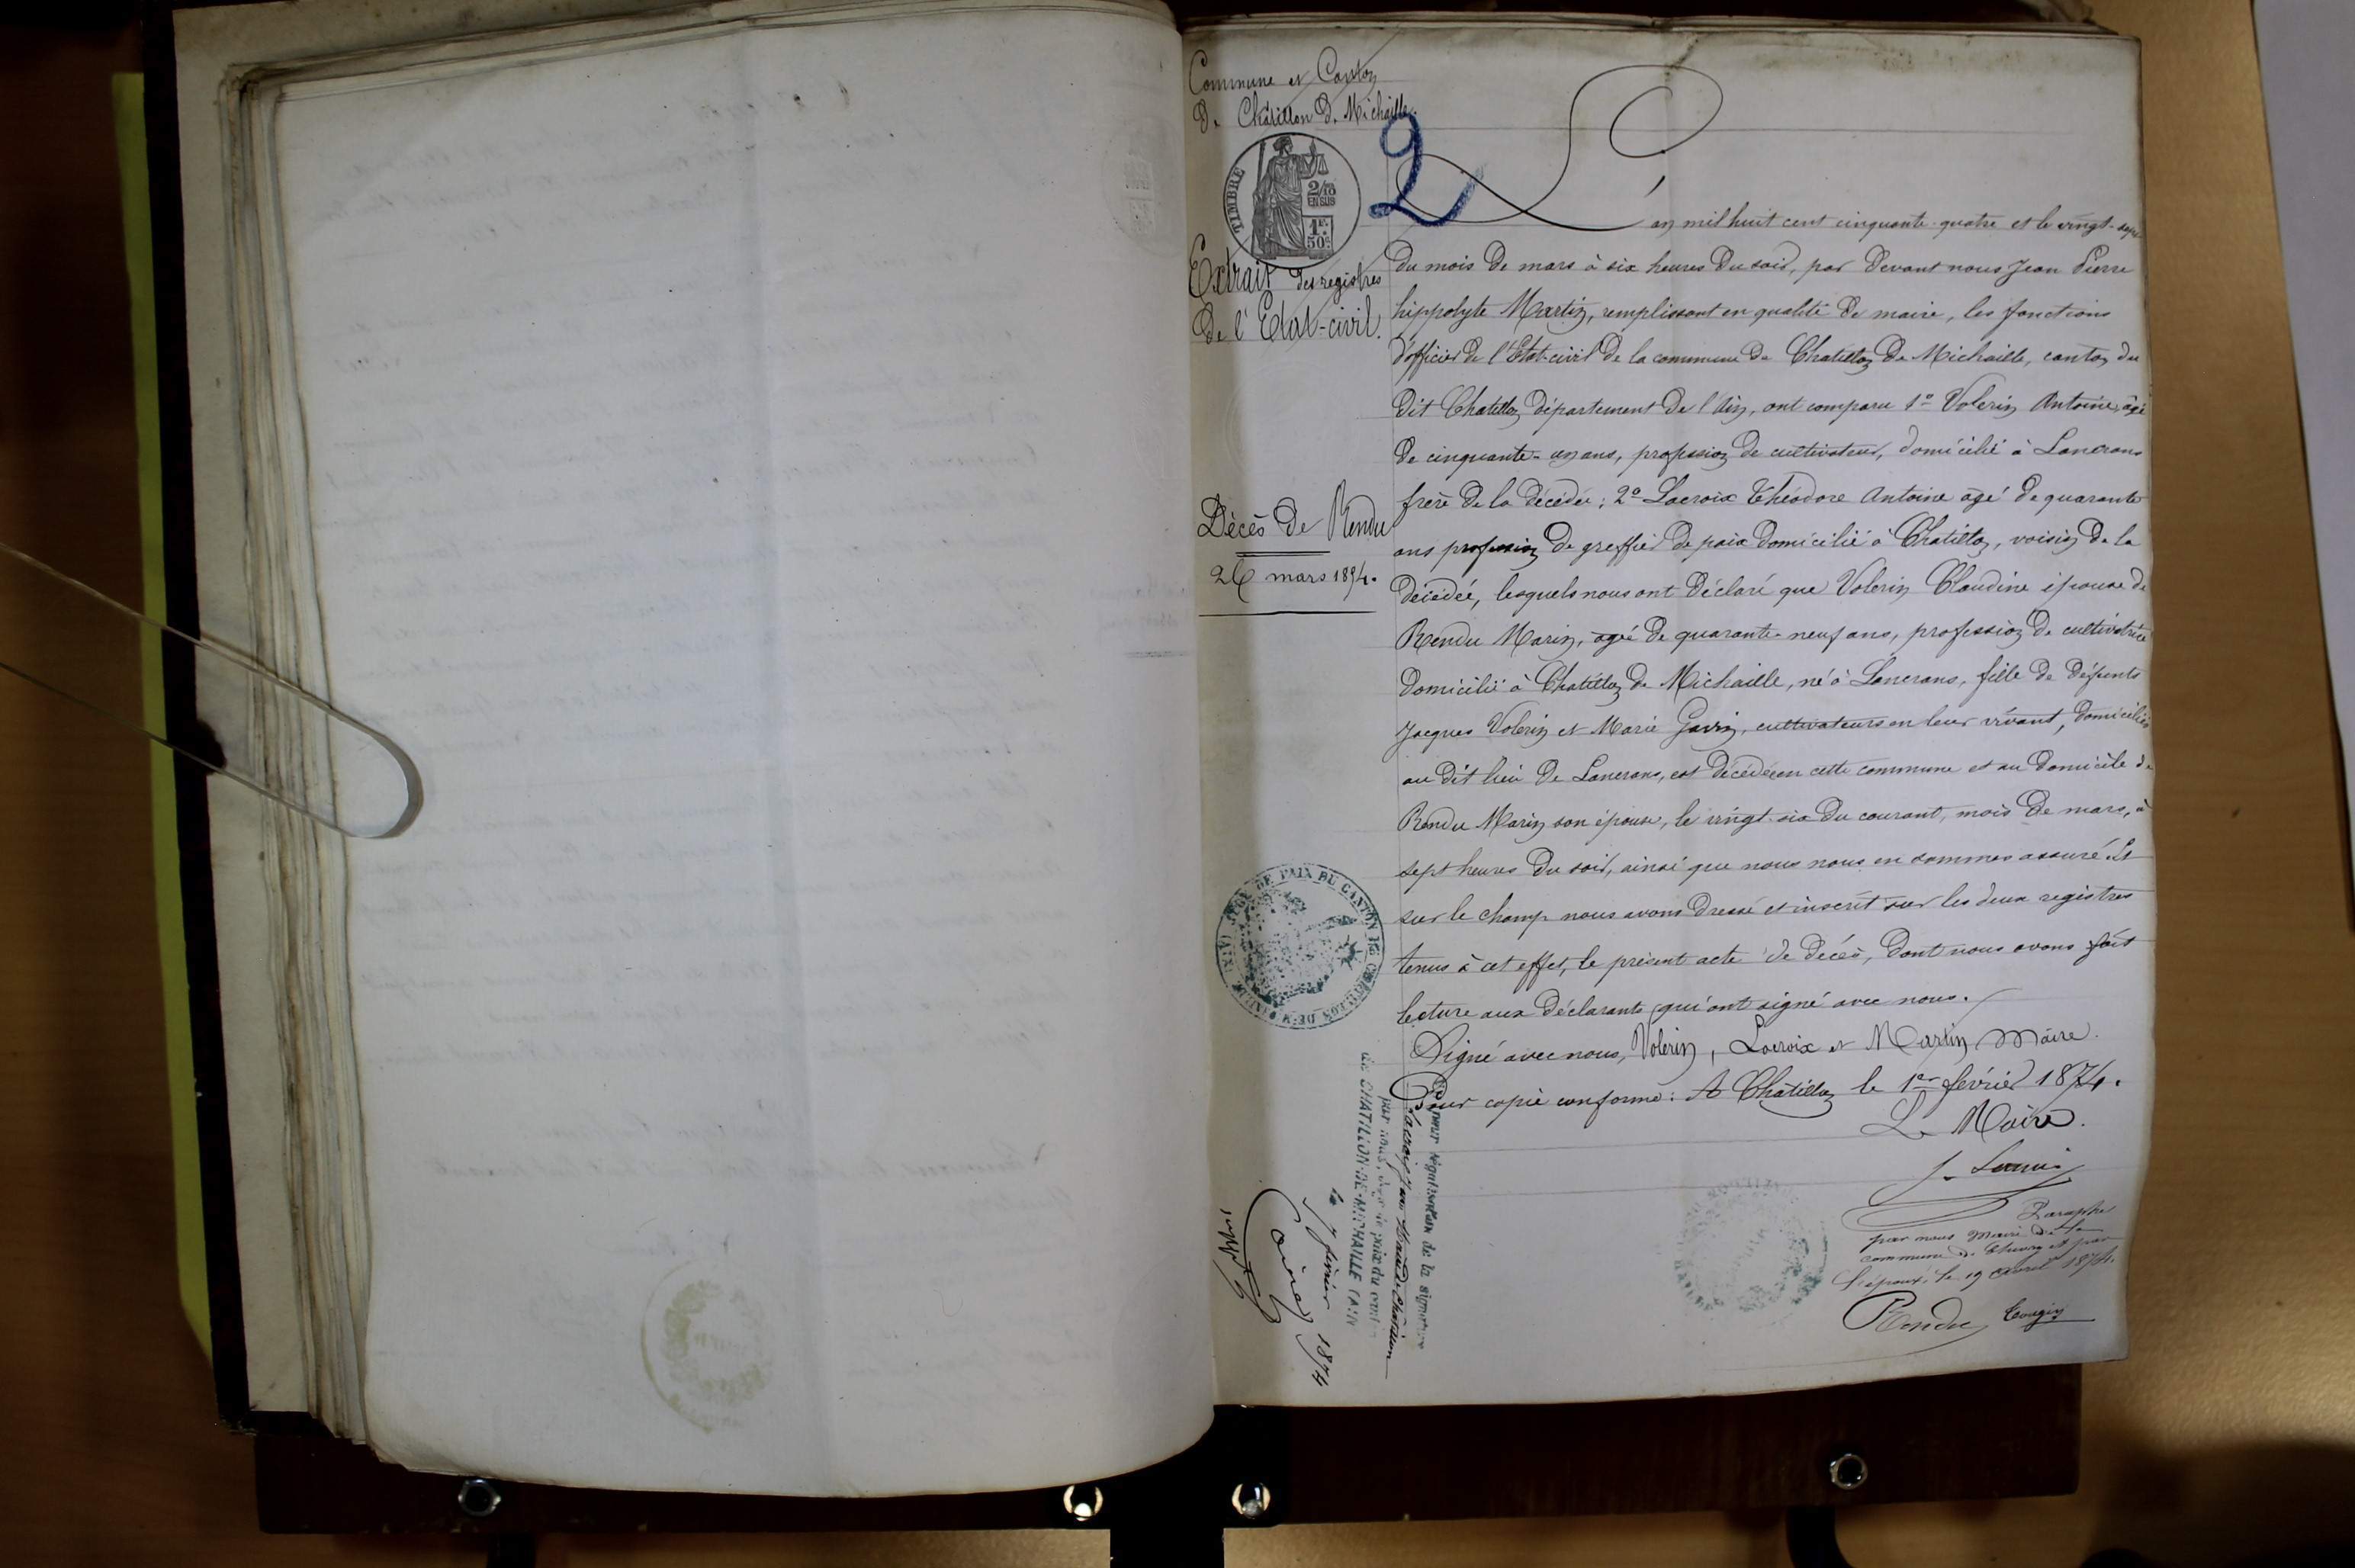 Commune et Canton
de Châtillon de Michaille.
2
TIMBRE
2/10
EN SUS
1F.
50c.
Extrait des registres
de l'Etat-civil.
Décès de Rendu
26 mars 1854.
L'an mil huit cent cinquante-quatre et le vingt-sept
du mois de mars à six heures du soir, par devant nous Jean Pierre
hippolyte Martin, remplissant en qualité de maire, les fonctions
d'officier de l'Etat-civil de la commune de Chatillon de Michaille, canton du
dit Chatillon département de l'Ain, ont comparu 1° Volerin Antoine, âgé
de cinquante-un ans, profession de cultivateur, domicilié à Lancrans
frère de la décédée; 2° Lacroix Théodore Antoine âgé de quarante
ans profession de greffier de paix domicilié à Chatillon, voisin de la
décédée, lesquels nous ont déclaré que Volerin Claudine épouse de
Rendu Marin, agée de quarante neuf ans, profession de cultivatrice
domicilié à Chatillon de Michaille, né à Lancrans, fille de défunts
Jacques Volerin et Marie Gavin, cultivateurs en leur vivant, domiciliés
au dit lieu de Lancrans, est décédée en cette commune et au domicile de
Rendu Marin son époux, le vingt-six du courant, mois de mars, à
sept heures du soir, ainsi que nous nous en sommes assuré. Et
sur le champ nous avons dressé et inscrit sur les deux registres
tenus à cet effet, le présent acte de décès, dont nous avons fait
lecture aux déclarants qui ont signé avec nous.
Signé avec nous, Volerin, Lacroix et Martin Maire.
Pour copie conforme: A Chatillon le 1er février 1874.
Le Maire.
Paraphé
par nous Maire de la
commune de et par
l'époux, le 19 avril 1874.
Rendu Tougin
JUSTICE DE PAIX DU CANTON DE CHATILLON-DE-MICHAILLE (AIN)
Vu pour légalisation de la signature
par nous, juge de paix du canton
de CHATILLON-DE-MICHAILLE (AIN
le 7 février 1874